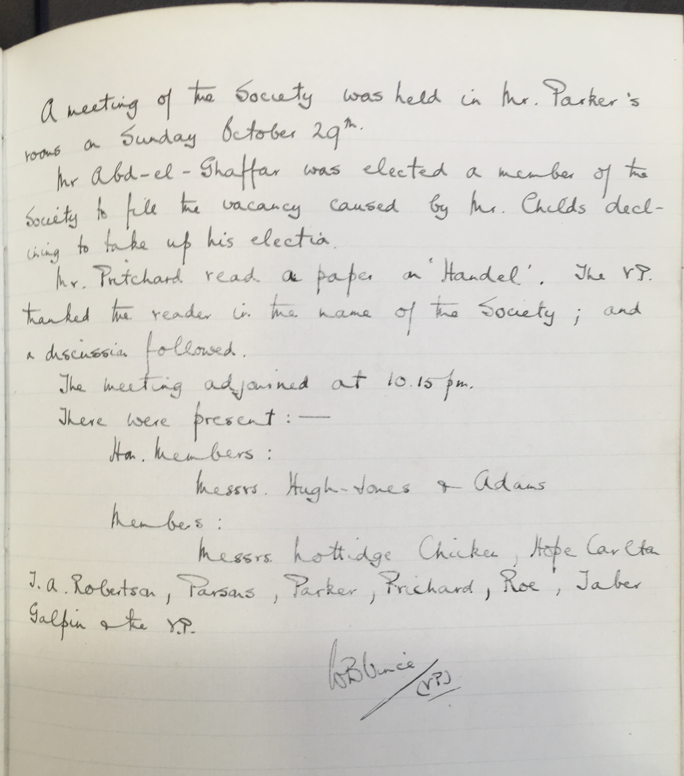 A meeting of the Society was held in Mr. Parker's
rooms on Sunday October 29th.
Mr Abd-el-Ghaffar was elected a member of the
Society to fill the vacancy caused by Mr. Childs decl-
ining to take up his election.
Mr. Pritchard read a paper on 'Handel'. The V.P.
thanked the reader in the name of the Society; and
a discussion followed.
The meeting adjourned at 10.15 pm.
There were present: —
Hon. Members:
Messrs. Hugh-Jones & Adams
Members:
Messrs. Lottidge Chicken, Hope Carlton
J.A. Robertson, Parsons, Parker, Prichard, Roe, Taber
Galpin & the V.P.
(VP)